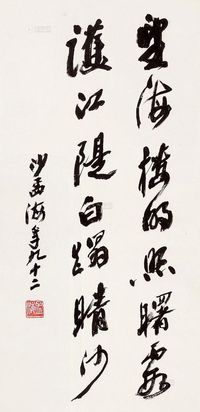 望海樓明照曙霞
護江隄白蹋晴沙
沙孟海年九十二